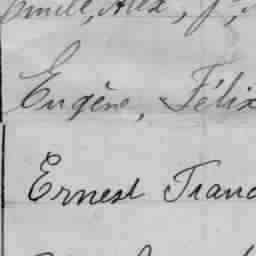 Emile, Alex, J,
Eugène, Félix
Ernest Franc